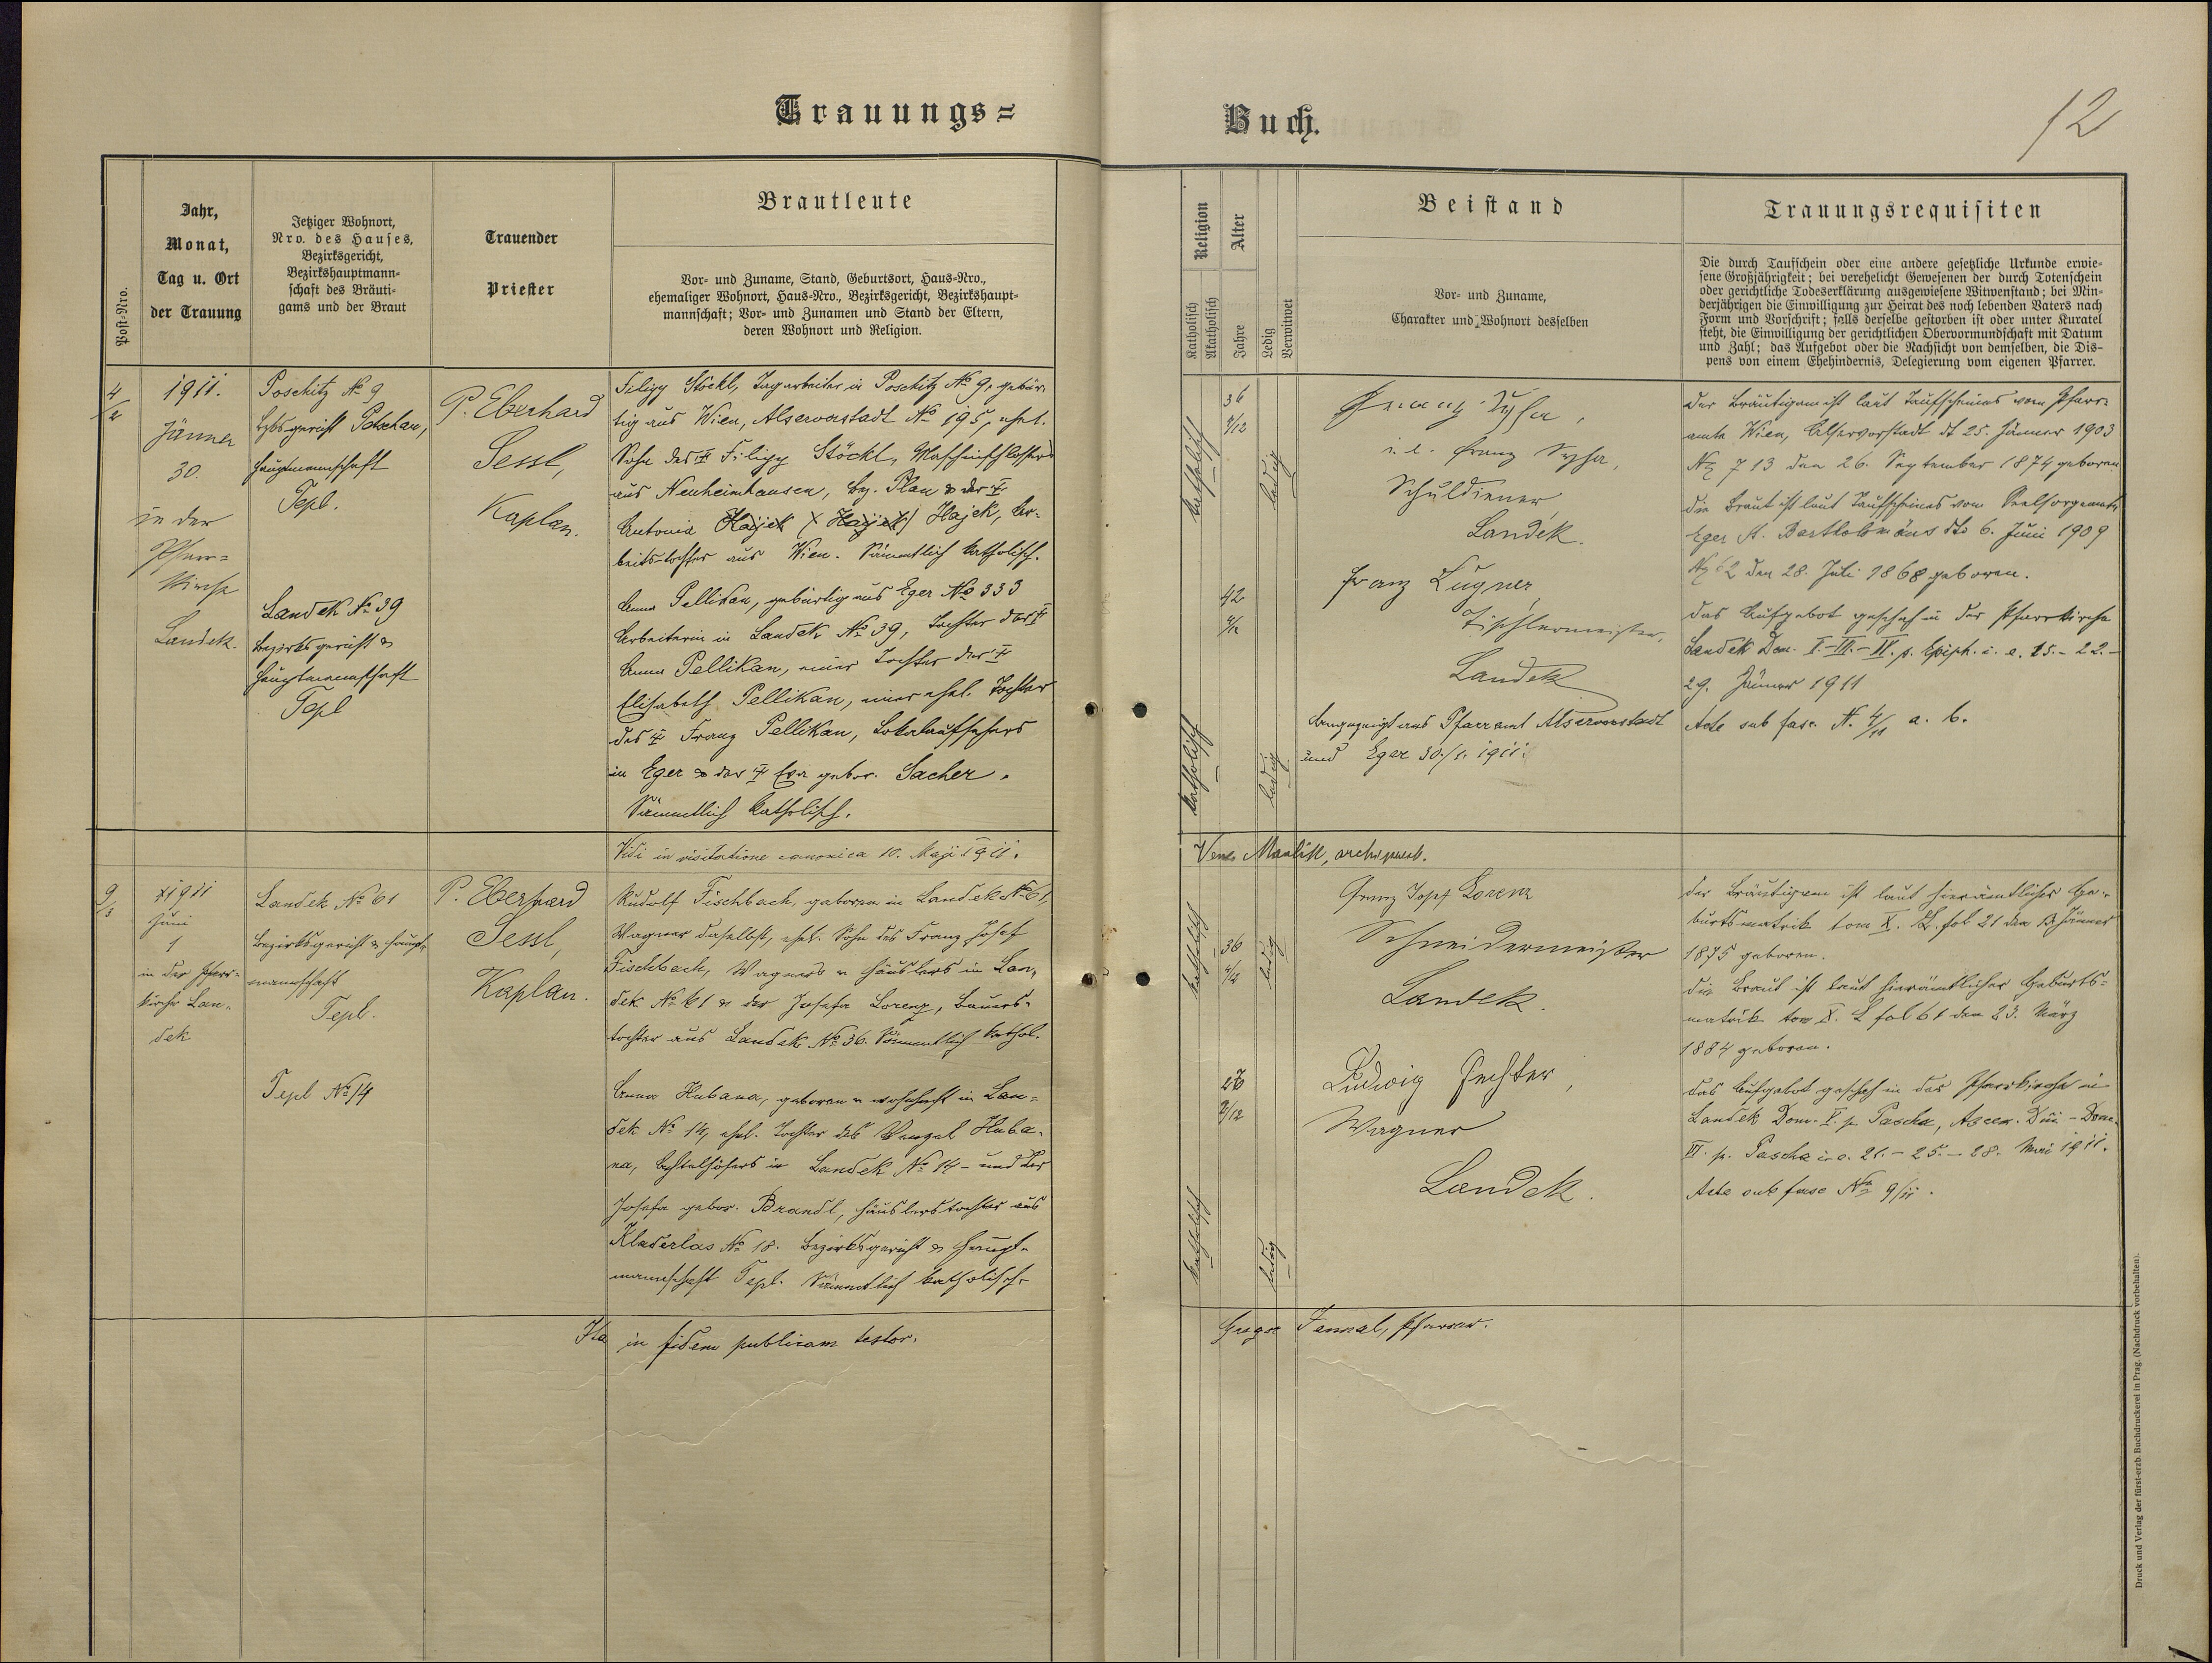 Trauungs=
Buch.
12
Post=Nro.
Jahr,
Monat,
Tag u. Ort
der Trauung
Jetziger Wohnort,
Nro. des Hauses,
Bezirksgericht,
Bezirkshauptmann=
schaft des Bräuti=
gams und der Braut
Trauender
Priester
Brautleute
Vor= und Zuname, Stand, Geburtsort, Haus=Nro.,
ehemaliger Wohnort, Haus=Nro., Bezirksgericht, Bezirkshaupt=
mannschaft; Vor= und Zunamen und Stand der Eltern,
deren Wohnort und Religion.
Religion
Katholisch
Akatholisch
Alter
Jahre
Ledig
Verwitwet
Beistand
Vor= und Zuname,
Charakter und Wohnort desselben
Trauungsrequisiten
Die durch Taufschein oder eine andere gesetzliche Urkunde erwie=
sene Großjährigkeit; bei verehelicht Gewesenen der durch Totenschein
oder gerichtliche Todeserklärung ausgewiesene Witwenstand; bei Min=
derjährigen die Einwilligung zur Heirat des noch lebenden Vaters nach
Form und Vorschrift; falls derselbe gestorben ist oder unter Kuratel
steht, die Einwilligung der gerichtlichen Obervormundschaft mit Datum
und Zahl; das Aufgebot oder die Nachsicht von demselben, die Dis=
pens von einem Ehehindernis, Delegierung vom eigenen Pfarrer.
1911.
Jänner
30.
in der
Pfarr=
kirche
Landek.
Poschitz № 9
Bzksgericht Petschau,
Hauptmannschaft
Tepl.
Landek № 39
Bezirksgericht &
Hauptmannschaft
Tepl
P. Eberhard
Sessl,
Kaplan.
Filipp Stöckl, Tagarbeiter in Poschitz № 9, gebür=
tig aus Wien, Alservorstadt № 195, ehel.
Sohn des † Filipp Stöckl, Maschinschlossers
aus Neuheimhausen, Bz. Plan & der †
Antonia Hajek, Ar=
beiterstochter aus Wien. Sämmtlich katholisch.
Anna Pellikan, gebürtig aus Eger № 333
Arbeiterin in Landek № 39, Tochter der †
Anna Pellikan, einer Tochter der †
Elisabeth Pellikan, einer ehel. Tochter
des † Franz Pellikan, Lokalaufsehers
in Eger & der † Eva gebor. Sacher.
Sämmtlich katholisch.
katholisch
36
4/12
ledig
42
katholisch
ledig
Franz Sysa,
i. e. Franz Sysa,
Schuldiener
Landek.
Franz Lugner,
Tischlermeister,
Landek
Angezeigt ans Pfarramt Alservorstadt
und Eger 30./1. 1911.
Der Bräutigam ist laut Taufscheines vom Pfarr=
amte Wien, Alservorstadt dt 25. Jänner 1903
№ 713 den 26. September 1874 geboren
die Braut ist laut Taufscheines vom Seelsorgeamte
Eger St. Bartholomäus dto 6. Juni 1909
№ 62 den 28. Juli 1868 geboren.
Das Aufgebot geschah in der Pfarrkirche
Landek Dom. II.-III.-IV. p. Epiph. i. e. 15.- 22.-
29. Jänner 1911
Acte sub fasc. N. 4/11 a. b.
Vidi in visitatione canonica 10. Maji 1911.
archipresb.
1911
Juni
1
in der Pfarr=
kirche Lan=
dek
Landek № 61
Bezirksgericht & Haupt=
mannschaft
Tepl.
Tepl № 14
P. Eberhard
Sessl,
Kaplan.
Rudolf Fischbach, geboren in Landek № 61,
Wagner daselbst, ehel. Sohn des Franz Josef
Fischbach, Wagners & Häuslers in Lan=
dek № 61 & der Josefa Lorenz, Bauers=
tochter aus Landek № 36. Sämmtlich kathol.
Anna Hubana, geboren & wohnhaft in Lan=
dek № 14, ehel. Tochter des Wenzel Huba=
na, Achtelhöfers in Landek № 14 - und der
Josefa gebor. Brandl, Häuslerstochter aus
Kladerlas № 18. Bezirksgericht & Haupt=
mannschaft Tepl. Sämmtlich katholisch.
katholisch
36
4/12
ledig
27
2/12
katholisch
ledig
Franz Josef Lorenz
Schneidermeister
Landek.
Ludwig Fechter,
Wagner
Landek.
Der Bräutigam ist laut hierämtlicher Ge=
burtsmatrik tom X. L. fol 21 den 13. Jänner
1875 geboren.
die Braut ist laut hierämtlicher Geburts=
matrik tom X. L fol 61 den 23. März
1884 geboren.
Das Aufgebot geschah in der Pfarrkirche in
Landek Dom. V. p. Pascha, Ascen. Dni - Dom.
VI. p. Pascha i. e. 21. - 25. - 28. Mai 1911.
Acte sub fasc № 9/11.
Ita in fidem publicam testor.
Pfarrer.
Druck und Verlag der fürst-erzb. Buchdruckerei in Prag. (Nachdruck vorbehalten).